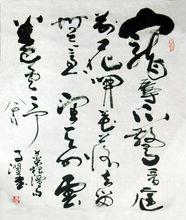 寵辱不驚看庭
前花開花落去留
無意望天雲
卷雲舒